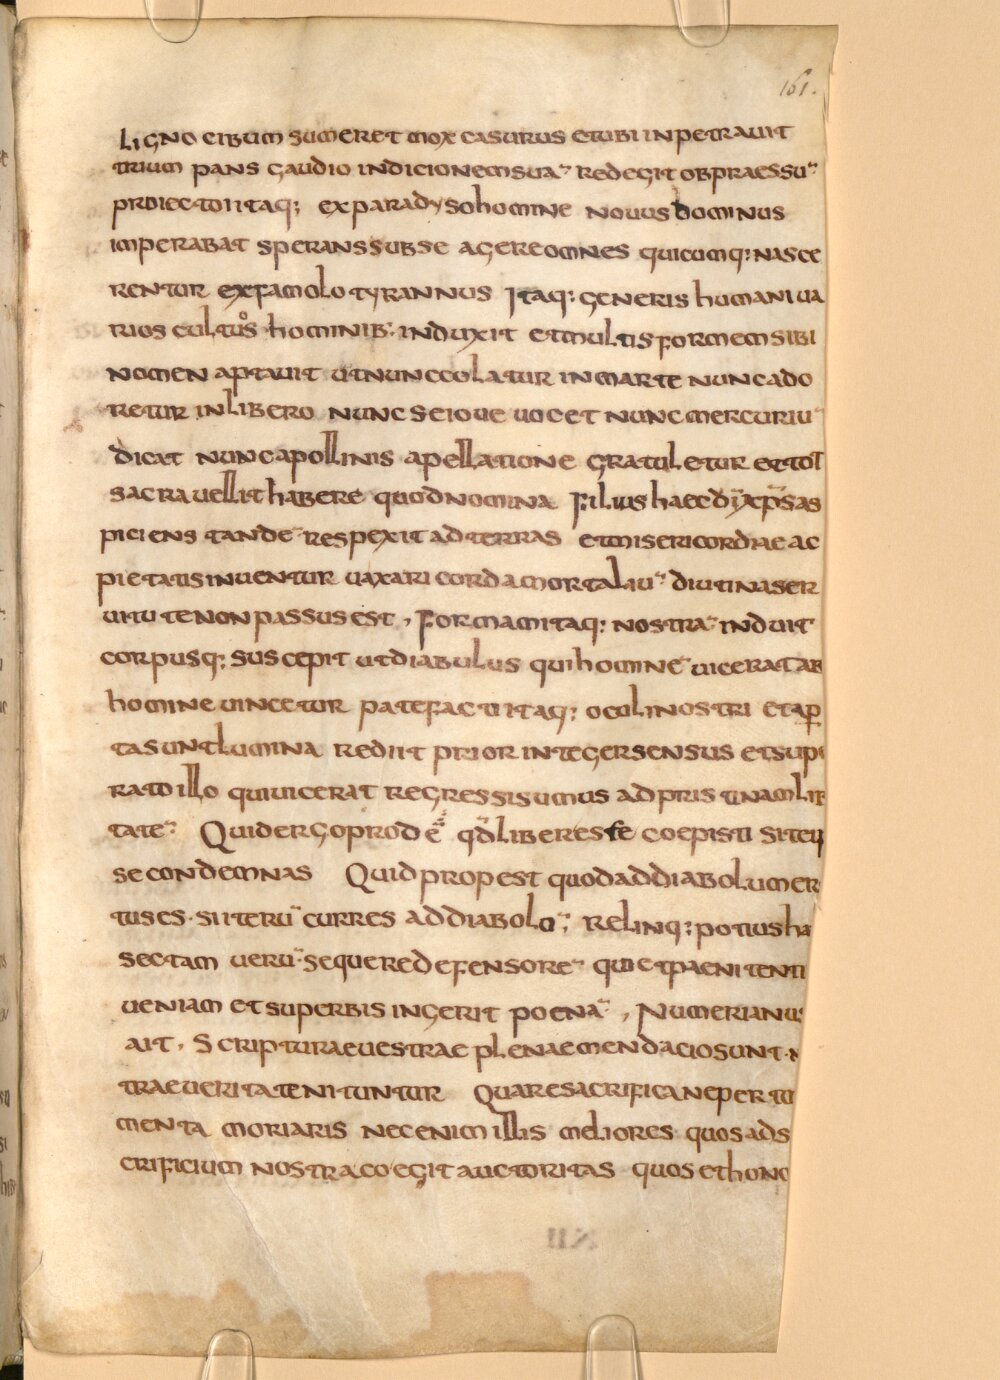 161.
ligno cibum sumeret mox casurus et ubi inpetrauit
trium pans gaudio in dicionem sua¯ redegit ob praessu¯
proiecto itaq; ex paradyso homine nouus dominus
imperabat sperans sub se agere omnes quicumq; nasce
rentur ex famolo tyrannus Itaq; generis humani ua
rios cultus hominib; induxit et multis formem sibi
nomen aptauit ut nunc colatur in marte nunc ado
retur in libero nunc se ioue uocet nunc mercuriu¯
dicat nunc apollinis apellatione gratuletur et tot
sacra uellit habere quod nomina Filius haec dī xp̄s as
piciens tande¯ respexit ad terras et misericordiae ac
pietatis inuentur uaxari corda mortaliu¯ diutina ser
uitute non passus est, Formam itaq; nostra¯ induit
corpusq; suscepit ut diabulus qui homine¯ uicerat ab
homine uincetur patefacti itaq; oculi nostri et ap̄
ta sunt lumina rediit prior integer sensus et supe
rato illo qui uicerat regressi sumus ad pristinam lib
tate¯ Quid ergo prode ē qd̄ liberesfe coepisti si te ip
se condemnas Quid propest quod ad diabolum er
tus es. si iteru¯ curres ad diabolo¯; Relinq; potius ha
sectam ueru¯ sequere defensore¯ qui et paenitenti
ueniam et superbis ingerit poena¯, Numerianus
ait, Scripturae uestrae plenae mendacio sunt. n
trae ueritate nituntur Quare sacrifica ne per to
menta moriaris nec enim illis meliores quos ad s
crificium nostra coegit auctoritas quos et hono
XII